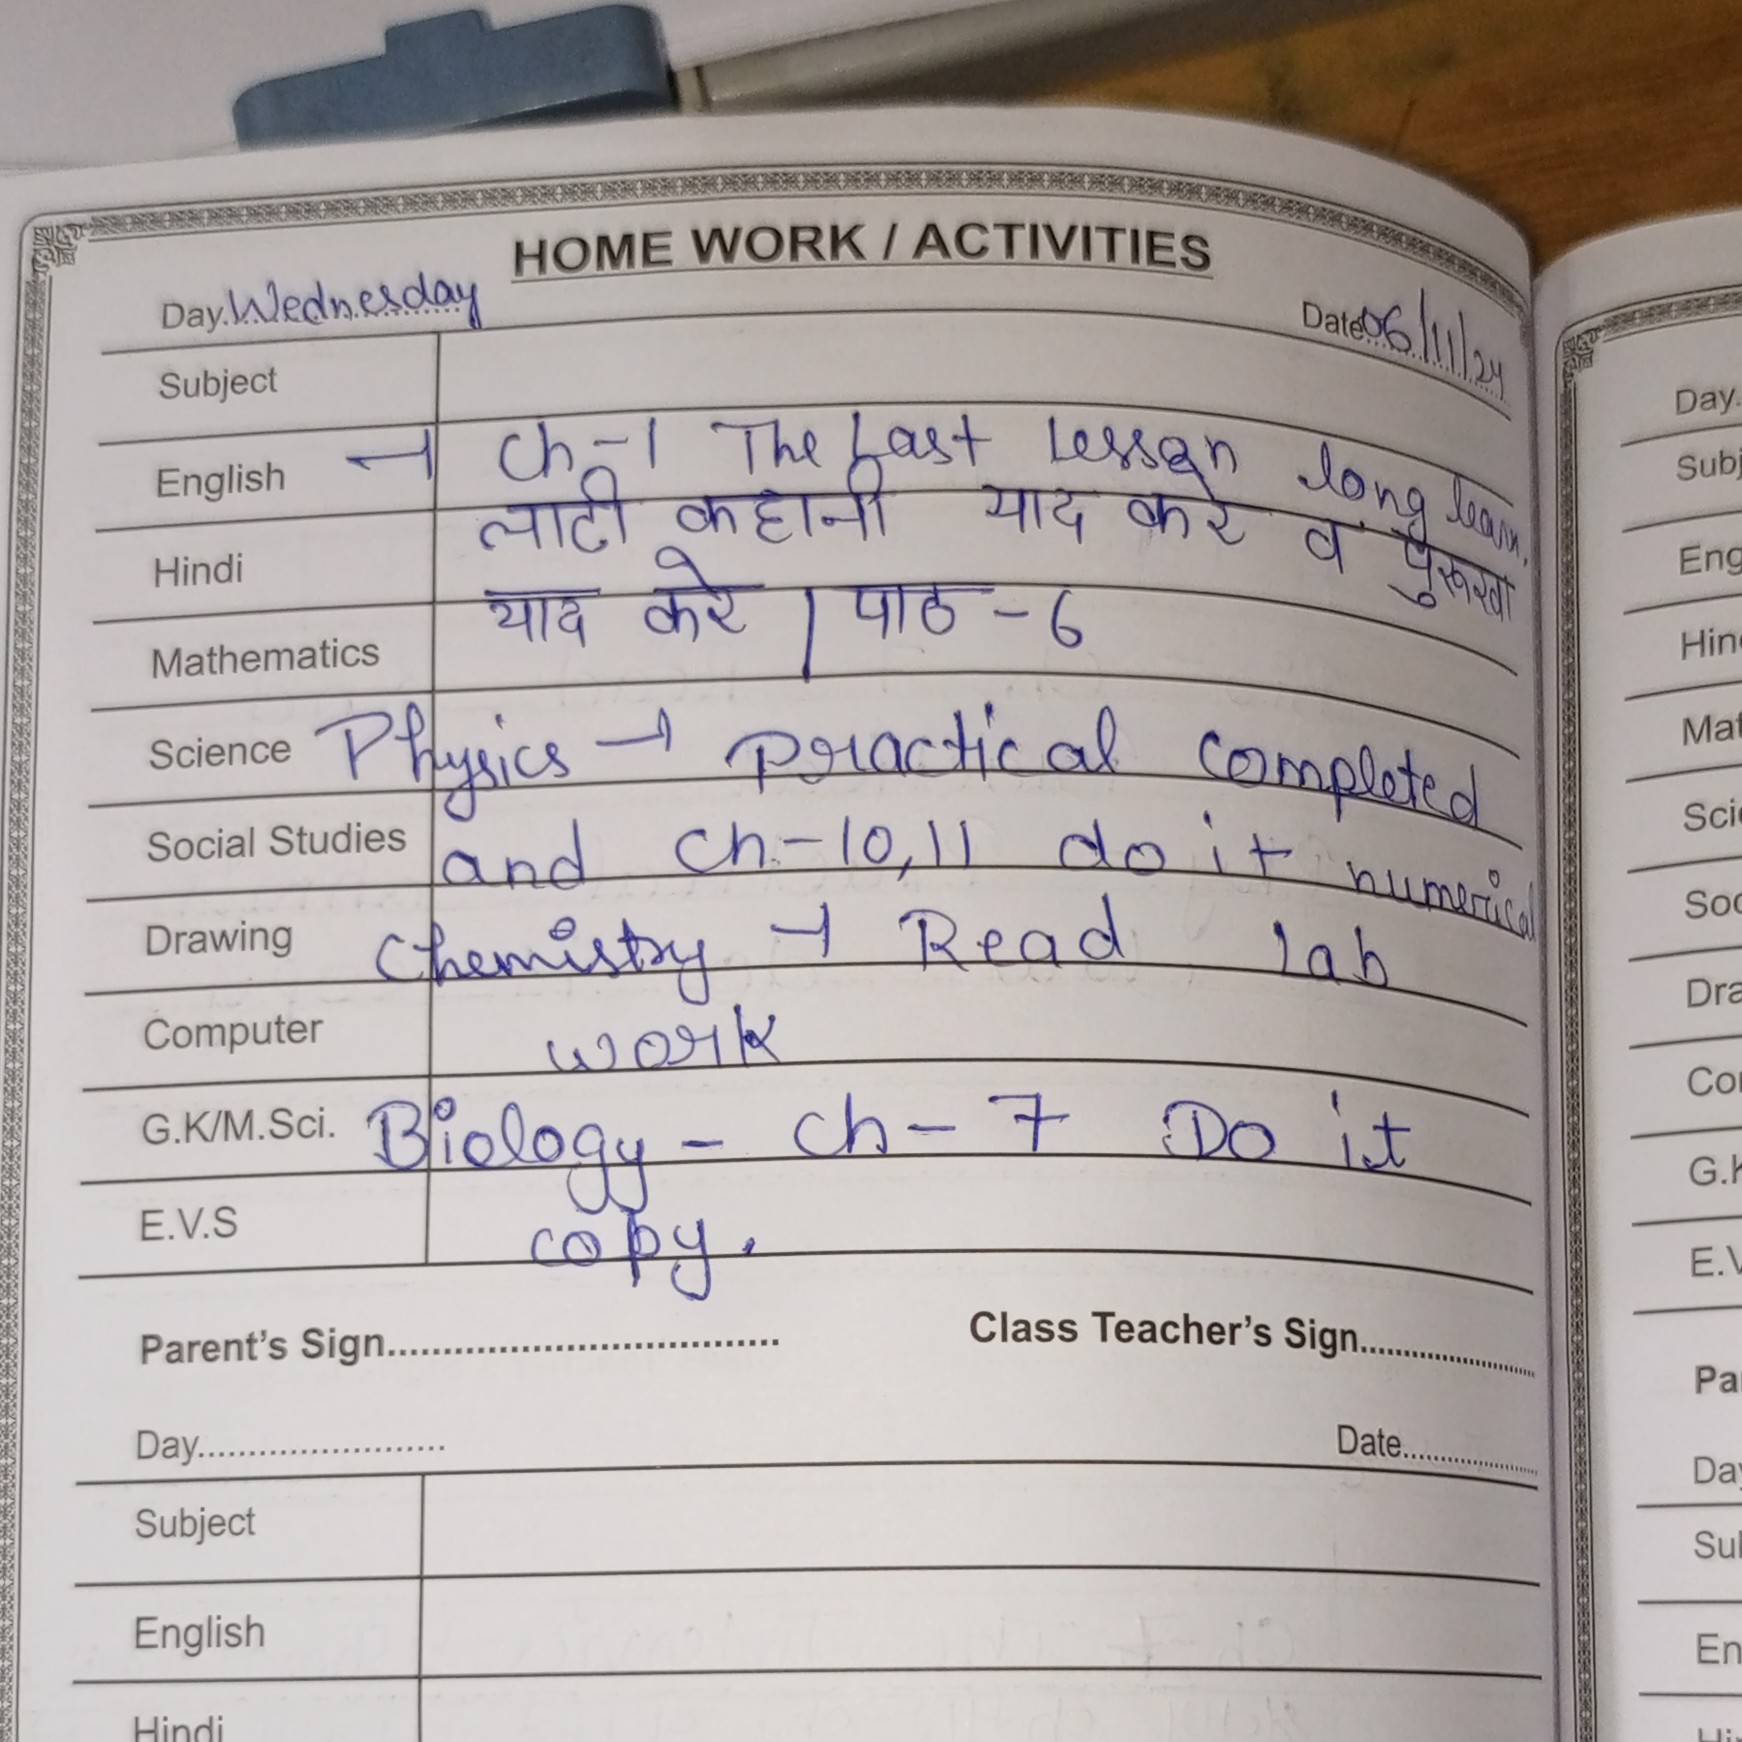 HOME WORK / ACTIVITIES
Day. Wednesday Date 06/11/24
Subject
English → Ch-1 The Last Lesson long learn.
Hindi लाटी कहानी याद करे व पुरूरवा
याद करे | पाठ - 6
Mathematics
Science Physics → practical completed
Social Studies and Ch-10,11 do it numerical
Drawing Chemistry → Read lab
Computer work
G.K/M.Sci. Biology - Ch - 7 Do it
E.V.S copy.
Parent's Sign................................... Class Teacher's Sign........................
Day......................... Date...................
Subject
English
Hindi
Day.
Subj
Eng
Hin
Mat
Sci
Soc
Dra
Co
G.K
E.V
Pa
Day
Su
En